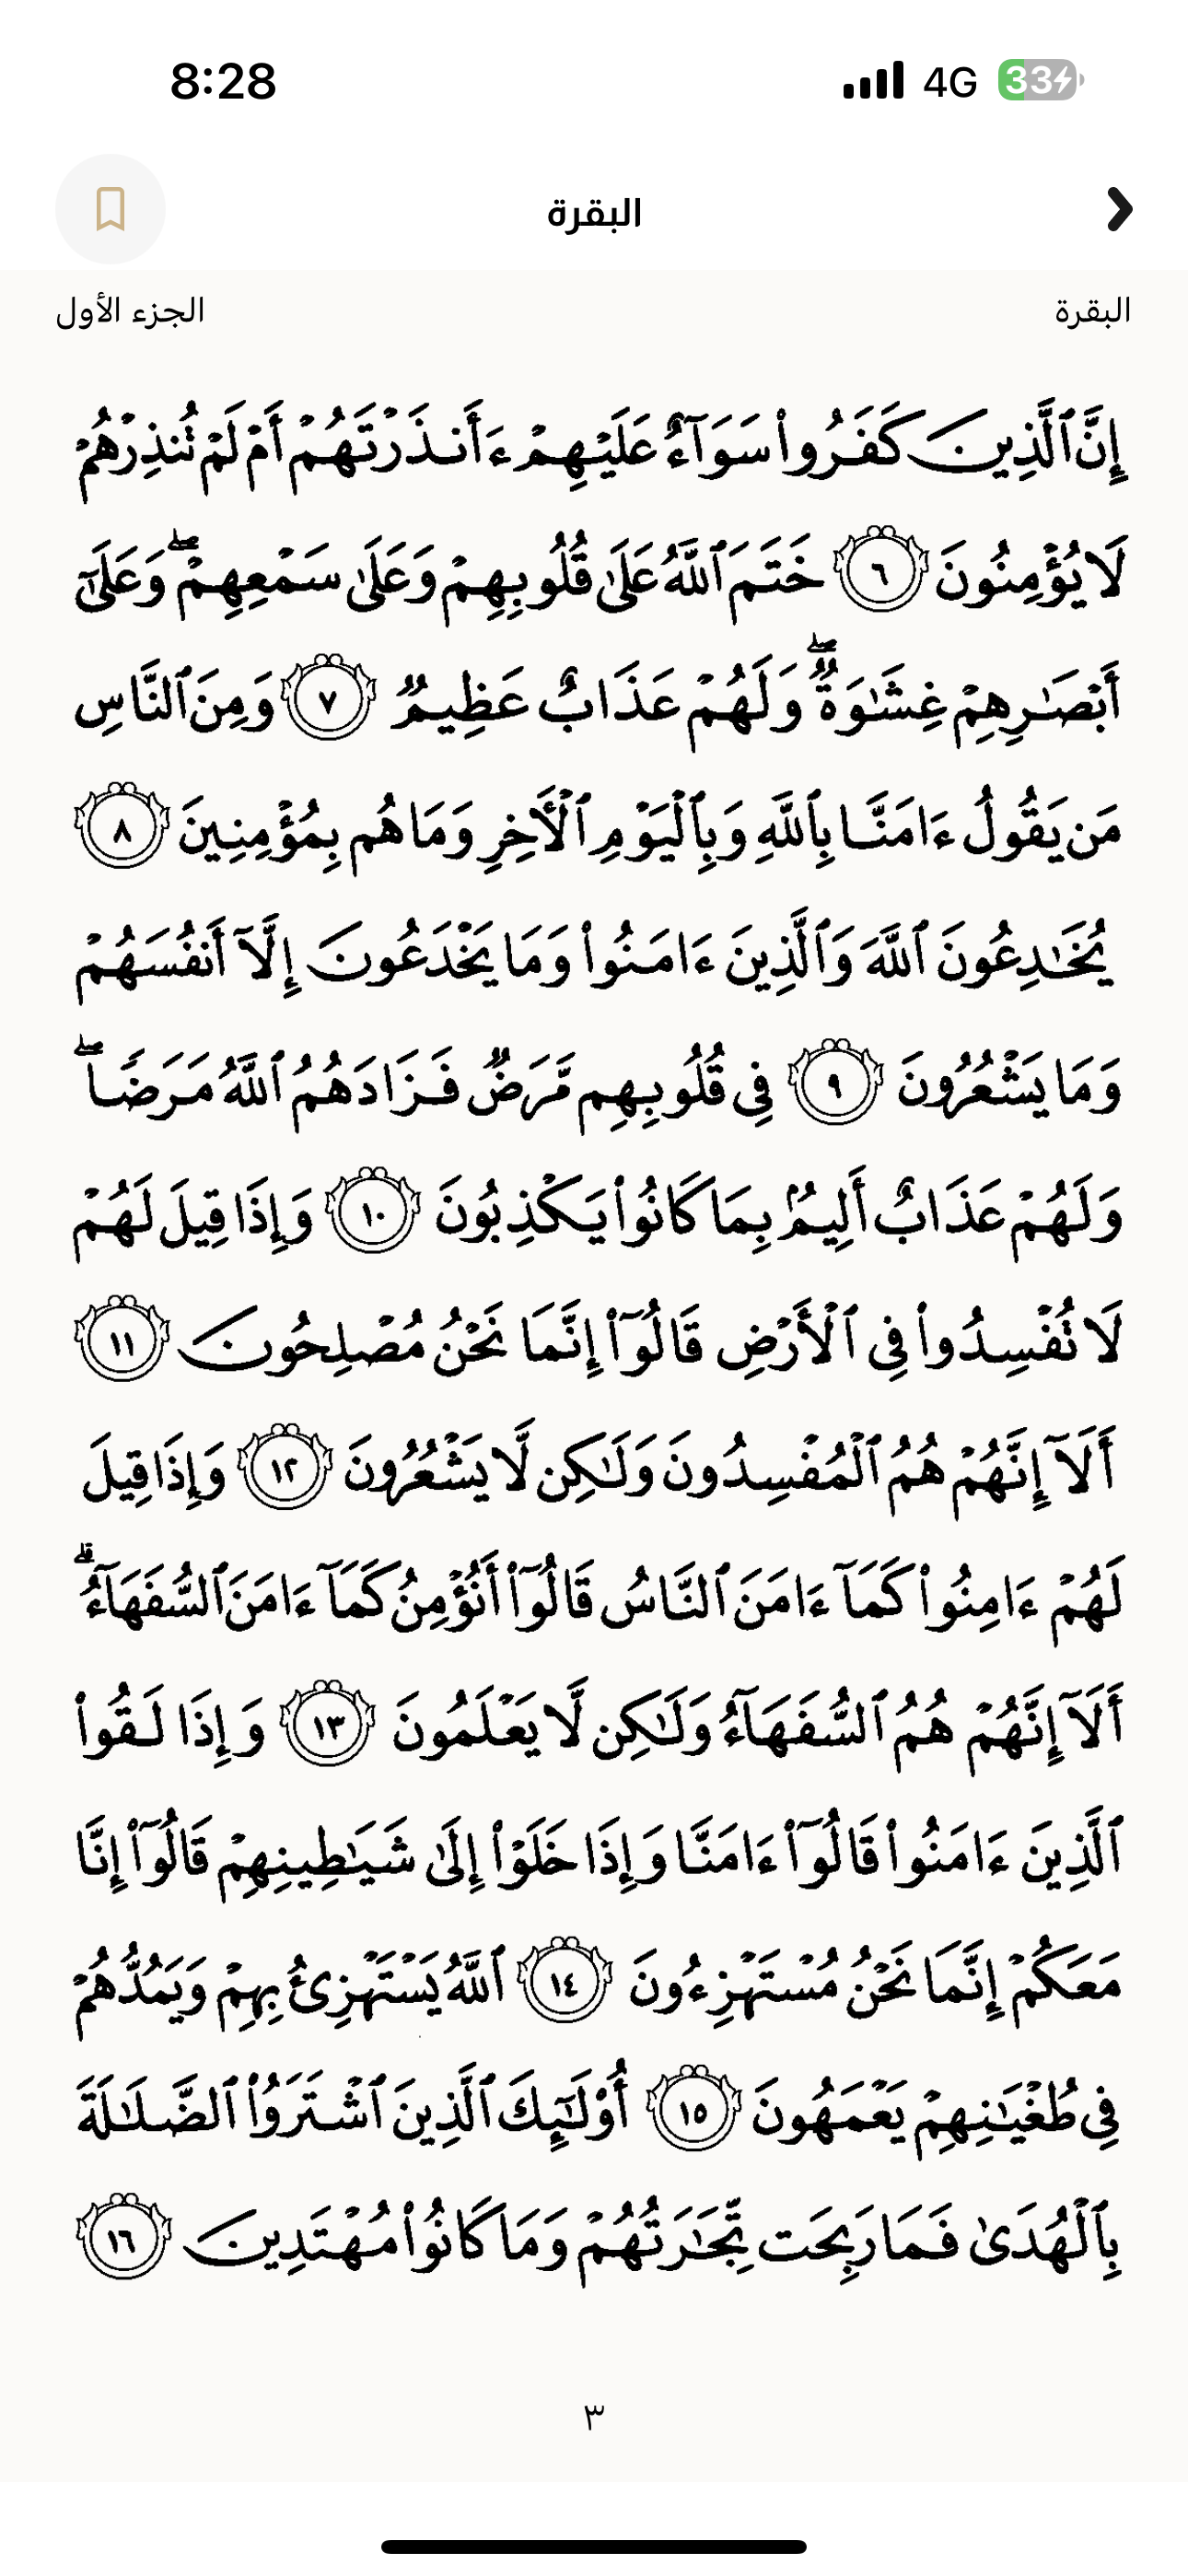 8:28
4G 33
البقرة
البقرة
الجزء الأول
إِنَّ ٱلَّذِينَ كَفَرُوا۟ سَوَآءٌ عَلَيْهِمْ ءَأَنذَرْتَهُمْ أَمْ لَمْ تُنذِرْهُمْ
لَا يُؤْمِنُونَ ٦ خَتَمَ ٱللَّهُ عَلَىٰ قُلُوبِهِمْ وَعَلَىٰ سَمْعِهِمْ ۖ وَعَلَىٰٓ
أَبْصَـٰرِهِمْ غِشَـٰوَةٌ ۖ وَلَهُمْ عَذَابٌ عَظِيمٌ ٧ وَمِنَ ٱلنَّاسِ
مَن يَقُولُ ءَامَنَّا بِٱللَّهِ وَبِٱلْيَوْمِ ٱلْـَٔاخِرِ وَمَا هُم بِمُؤْمِنِينَ ٨
يُخَـٰدِعُونَ ٱللَّهَ وَٱلَّذِينَ ءَامَنُوا۟ وَمَا يَخْدَعُونَ إِلَّآ أَنفُسَهُمْ
وَمَا يَشْعُرُونَ ٩ فِى قُلُوبِهِم مَّرَضٌ فَزَادَهُمُ ٱللَّهُ مَرَضًا ۖ
وَلَهُمْ عَذَابٌ أَلِيمٌۢ بِمَا كَانُوا۟ يَكْذِبُونَ ١٠ وَإِذَا قِيلَ لَهُمْ
لَا تُفْسِدُوا۟ فِى ٱلْأَرْضِ قَالُوٓا۟ إِنَّمَا نَحْنُ مُصْلِحُونَ ١١
أَلَآ إِنَّهُمْ هُمُ ٱلْمُفْسِدُونَ وَلَـٰكِن لَّا يَشْعُرُونَ ١٢ وَإِذَا قِيلَ
لَهُمْ ءَامِنُوا۟ كَمَآ ءَامَنَ ٱلنَّاسُ قَالُوٓا۟ أَنُؤْمِنُ كَمَآ ءَامَنَ ٱلسُّفَهَآءُ ۗ
أَلَآ إِنَّهُمْ هُمُ ٱلسُّفَهَآءُ وَلَـٰكِن لَّا يَعْلَمُونَ ١٣ وَإِذَا لَقُوا۟
ٱلَّذِينَ ءَامَنُوا۟ قَالُوٓا۟ ءَامَنَّا وَإِذَا خَلَوْا۟ إِلَىٰ شَيَـٰطِينِهِمْ قَالُوٓا۟ إِنَّا
مَعَكُمْ إِنَّمَا نَحْنُ مُسْتَهْزِءُونَ ١٤ ٱللَّهُ يَسْتَهْزِئُ بِهِمْ وَيَمُدُّهُمْ
فِى طُغْيَـٰنِهِمْ يَعْمَهُونَ ١٥ أُو۟لَـٰٓئِكَ ٱلَّذِينَ ٱشْتَرَوُا۟ ٱلضَّلَـٰلَةَ
بِٱلْهُدَىٰ فَمَا رَبِحَت تِّجَـٰرَتُهُمْ وَمَا كَانُوا۟ مُهْتَدِينَ ١٦
٣